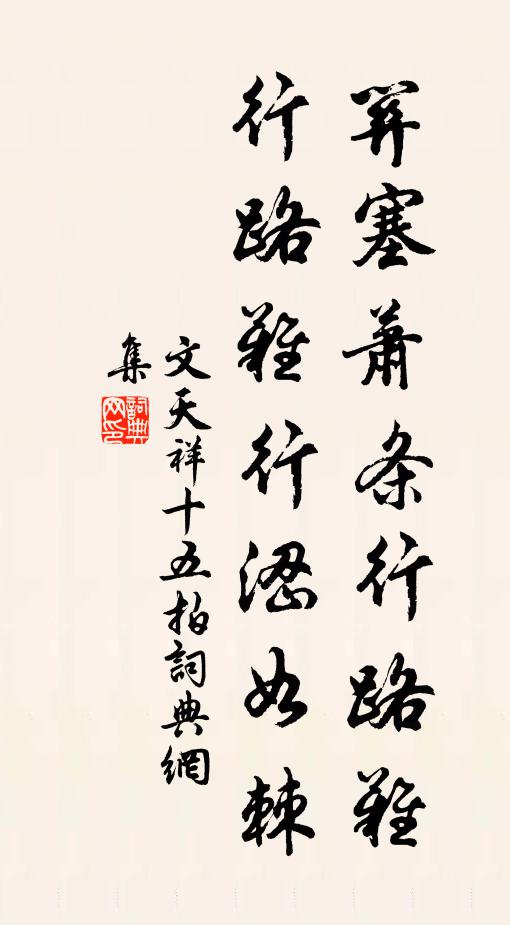 关塞蕭条行路難
行路難行涩如棘
文天祥十五拍詞典網
集
詞典
网印